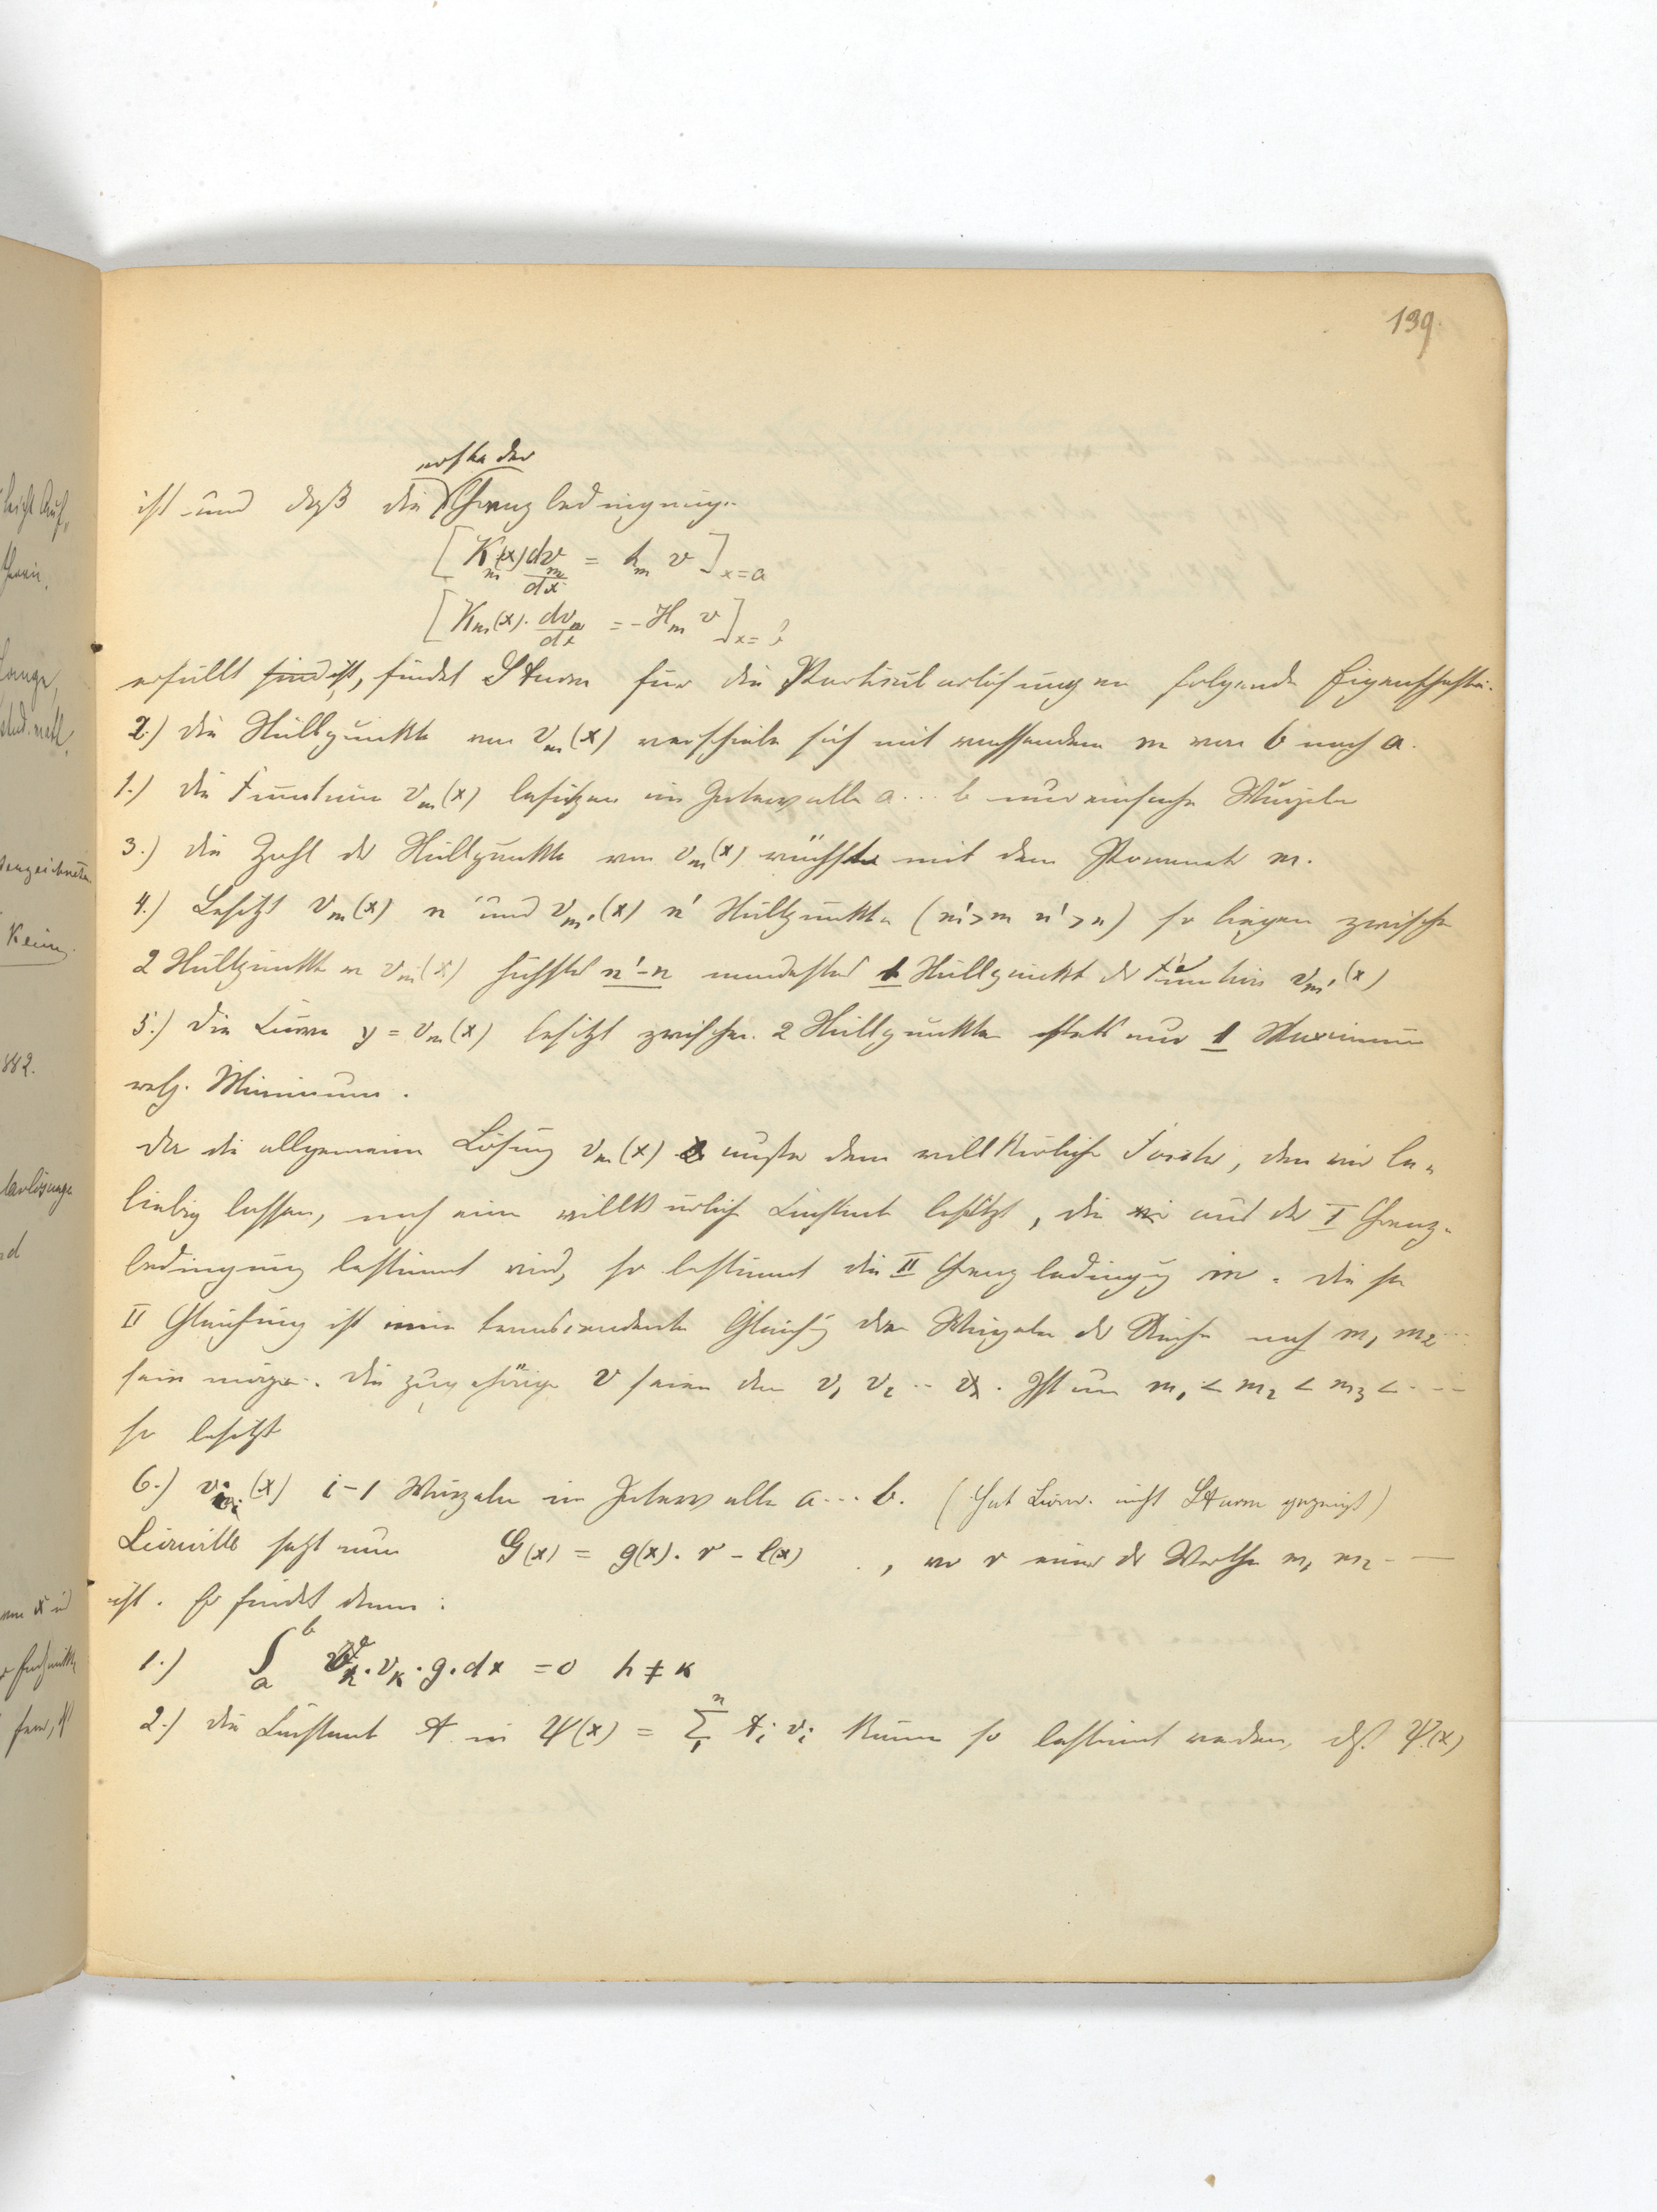 139.
erste der
ist und daß die Grenzbedingung..
[K_m(x) dv_m/dx = h_m v]_{x=a}
[K_m(x) . dv_m/dx = - H_m v]_{x=b}
erfüllt sind ist, findet Sturm für die Partikularlösungen folgende Eigenschaften.
2.) Die Nullpunkte von v_m(x) verschieben sich mit wachsendem m von b nach a.
1.) Die Funktionen v_m(x) besitzen im Intervalle a...b nur einfache Wurzeln
3.) Die Zahl der Nullpunkte von v_m(x) wächst mit dem Parameter m.
4.) Besitzt v_m(x) n und v_m'(x) n' Nullpunkte (m'>m n'>n) so liegen zwischen
2 Nullpunkten v_m(x) höchstens n'-n mindestens 1 Nullpunkt der Funktion v_m'(x)
5.) Die Curve y = v_m(x) besitzt zwischen 2 Nullpunkten stets nur 1 Maximum
resp. Minimum.
Da die allgemeine Lösung v_m(x) außer dem willkürlichen Factor, den wir be-
liebig lassen, noch eine willkürliche Constante besitzt, die aus der I Grenz-
bedingung bestimmt wird, so bestimmt die II Grenzbedingung m. Diese
II Gleichung ist eine transcendente Gleichung deren Wurzeln der Reihe nach m_1 m_2...
sein mögen. Die zugehörigen v seien dann v_1 v_2 ... Ist nun m_1 < m_2 < m_3 < ...
so besitzt
6.) v_i(x) i-1 Wurzeln im Intervalle a...b. (Hat Liouv. nicht Sturm gezeigt)
Liouville setzt nun G(x) = g(x). r - l(x) , wo r einer der Werthe m_1 m_2 - -
ist. Er findet dann:
1.) ∫_a^b v_h . v_k . g . dx = 0 h ≠ k
2.) Die Constante A in Ψ(x) = Σ_1^n A_i v_i kann so bestimmt werden, dß Ψ(x)